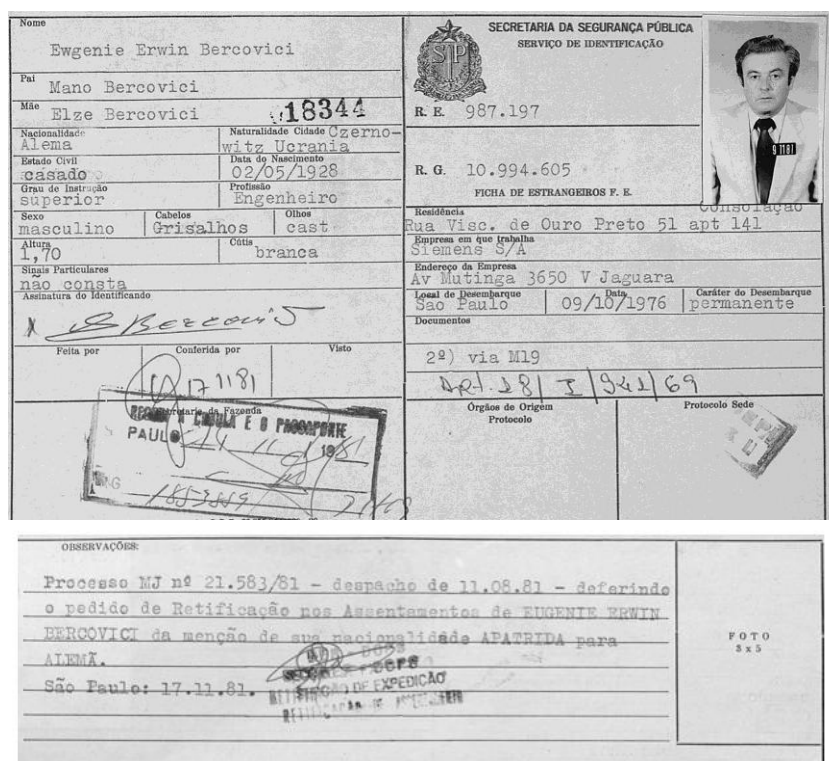 Nome
Ewgenie Erwin Bercovici
Pai
Mano Bercovici
Mãe
Elze Bercovici
18344
Nacionalidade
Alema
Naturalidade Cidade Czerno-
witz Ucrania
Estado Civil
casado
Data do Nascimento
02/05/1928
Grau de Instrução
superior
Profissão
Engenheiro
Sexo
masculino
Cabelos
Grisalhos
Olhos
cast
Altura
1,70
Cútis
branca
Sinais Particulares
não consta
Assinatura do Identificando
x Bercovici
Feita por
Conferida por
Visto
17 11 81
Secretaria da Fazenda
CEDULA E O PASSAPORTE
PAULO 24 11 1981
SECRETARIA DA SEGURANÇA PÚBLICA
SERVIÇO DE IDENTIFICAÇÃO
SP
R. E. 987.197
R. G. 10.994.605
FICHA DE ESTRANGEIROS F. E.
9 11 81
Residência
Consolação
Rua Visc. de Ouro Preto 51 apt 141
Empresa em que trabalha
Siemens S/A
Endereço da Empresa
Av Mutinga 3650 V Jaguara
Local de Desembarque
Sao Paulo
Data
09/10/1976
Caráter do Desembarque
permanente
Documentos
2º) via M19
Art. 18 | I | 941/69
Órgãos de Origem
Protocolo
Protocolo Sede
OBSERVAÇÕES:
Processo MJ nº 21.583/81 - despacho de 11.08.81 - deferindo
o pedido de Retificação nos Assentamentos de EUGENIE ERWIN
BERCOVICI da menção de sua nacionalidade APATRIDA para
ALEMÃ.
São Paulo: 17.11.81.
DOPS
SECÇÃO DE EXPEDIÇÃO
FOTO
3 x 5